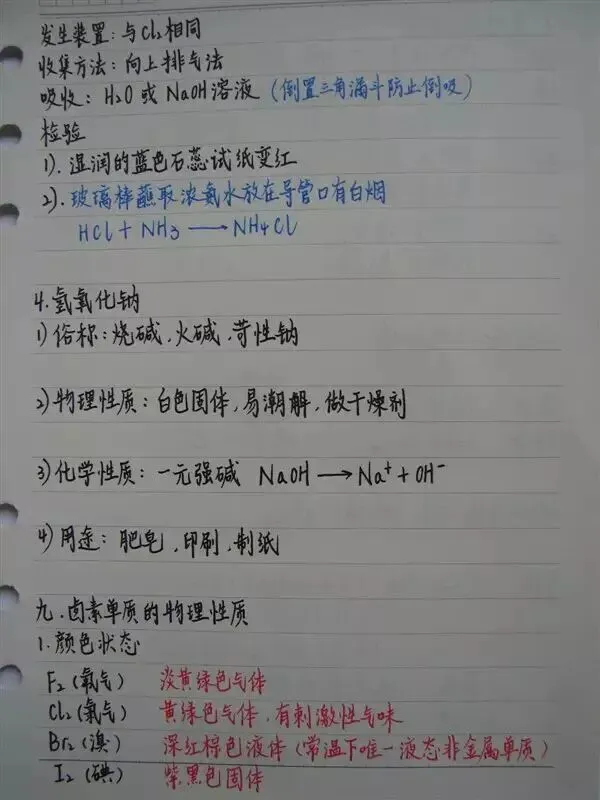 发生装置：与Cl₂相同
收集方法：向上排气法
吸收：H₂O或NaOH溶液（倒置三角漏斗防止倒吸）
检验
1）.湿润的蓝色石蕊试纸变红
2）.玻璃棒蘸取浓氨水放在导管口有白烟
HCl + NH₃ ⟶ NH₄Cl
4.氢氧化钠
1）俗称：烧碱，火碱，苛性钠
2）物理性质：白色固体，易潮解，做干燥剂
3）化学性质：一元强碱 NaOH ⟶ Na⁺ + OH⁻
4）用途：肥皂，印刷，制纸
九.卤素单质的物理性质
1.颜色状态
F₂（氟气） 淡黄绿色气体
Cl₂（氯气） 黄绿色气体，有刺激性气味
Br₂（溴） 深红棕色液体（常温下唯一液态非金属单质）
I₂（碘） 紫黑色固体